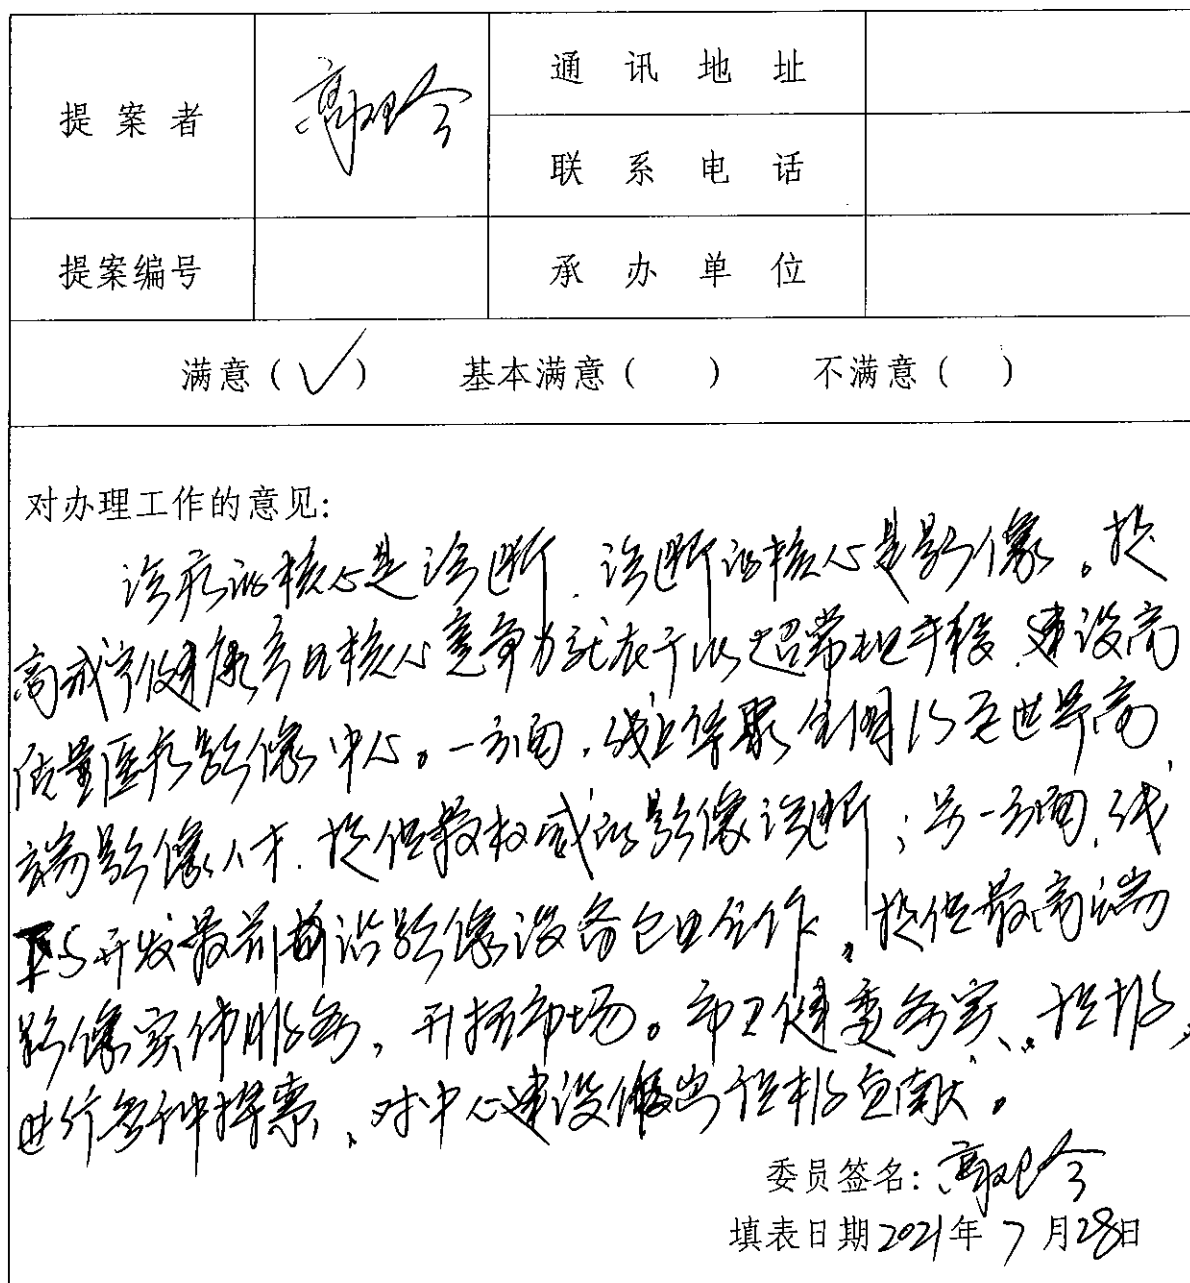 提案者
通讯地址
联系电话
提案编号
承办单位
满意（✓） 基本满意（ ） 不满意（ ）
对办理工作的意见：
诊疗的核心是诊断，诊断的核心是影像。提
高城市健康产业核心竞争力就在于以超常规手段，建设高
质量医疗影像中心。一方面，线上华聚全国乃至世界高
端影像人才，提供最权威的影像诊断；另一方面，线
下与开发最前沿影像设备企业合作，提供最高端
影像实体服务，开拓市场。市卫健委务实、积极，
进行多种探索，对中心建设做出积极贡献。
委员签名：
填表日期2021年7月28日